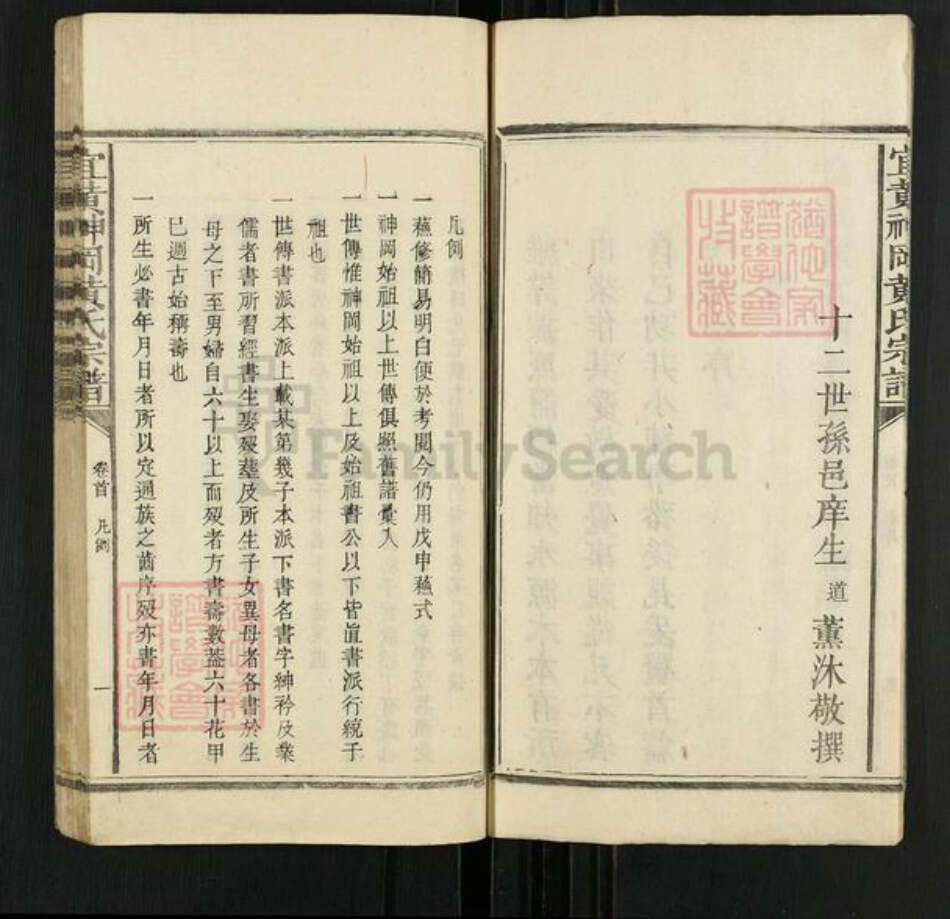 宜黃神岡黃氏宗譜
十二世孫邑庠生道薰沐敬撰
凡例
一蘓修簡易明白便於考閱今仍用戊申蘓式
一神岡始祖以上世傳俱照舊譜彙入
一世傳惟神岡始祖以上及始祖書公以下皆直書派行統于
祖也
一世傳書派本派上載某第幾子本派下書名書字紳衿及業
儒者書所習經書生娶歿葬及所生子女異母者各書於生
母之下至男婦自六十以上而歿者方書壽數葢六十花甲
已週古始稱壽也
一所生必書年月日者所以定通族之齒序歿亦書年月日者
宜黃神岡黃氏宗譜
卷首 凡例
一
FamilySearch